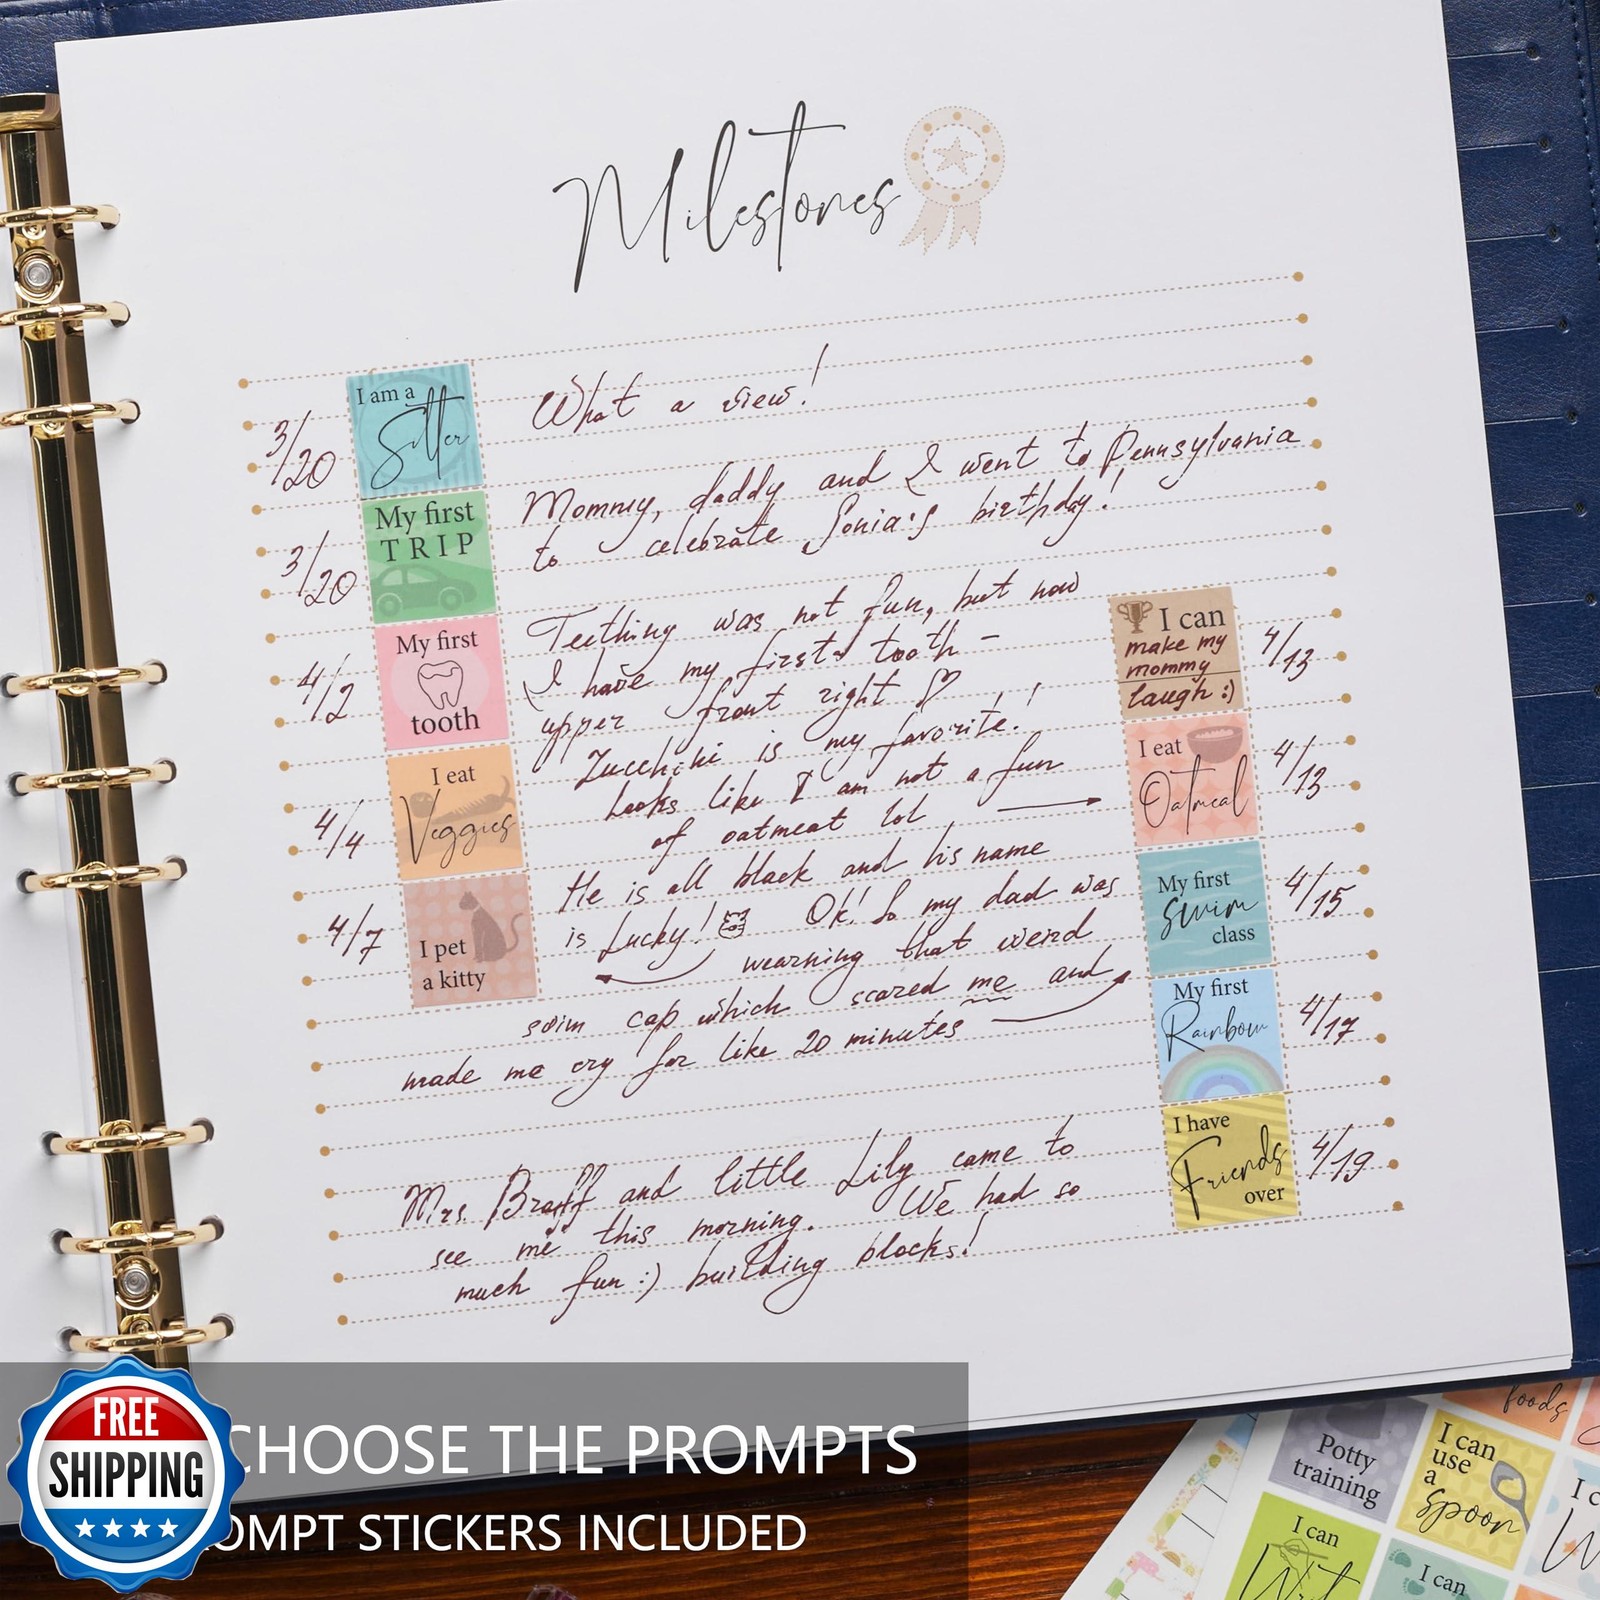 Milestones
I am a
Sitter
3/20
What a view!
My first
TRIP
3/20
Mommy, daddy and I went to Pennsylvania
to celebrate Sonia's birthday!
My first
tooth
4/2
Teething was not fun, but now
I have my first tooth -
upper front right ♡
I eat
Veggies
4/4
Zucchini is my favorite!
I can
make my
mommy
laugh :)
4/13
I eat
Oatmeal
4/13
Looks like I am not a fun
of oatmeat lol
I pet
a kitty
4/7
He is all black and his name
is Lucky!
My first
Swim
class
4/15
Ok! So my dad was
wearning that weird
swim cap which scared me and
made me cry for like 20 minutes
My first
Rainbow
4/17
I have
Friends
over
4/19
Mrs. Braff and little Lily came to
see me this morning. We had so
much fun :) building blocks!
foods
Potty
training
I can
use
a
spoon
I can
Write
I can
FREE
SHIPPING
CHOOSE THE PROMPTS
OMPT STICKERS INCLUDED